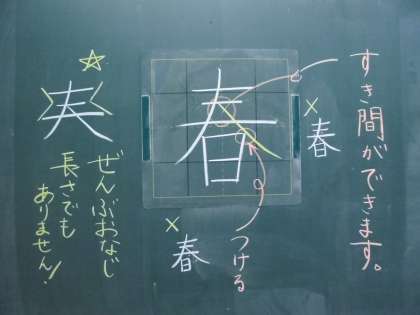 すき間ができます。
×
春
春
つける
×
春
☆
𡗗
ぜんぶおなじ
長さでも
ありません!